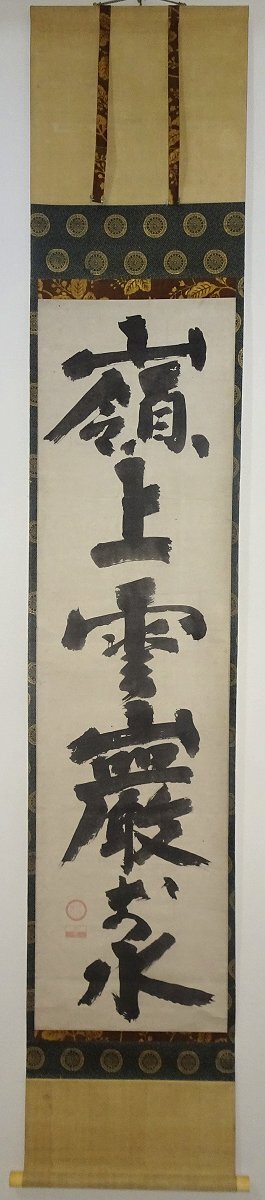 嶺上雲巖前水